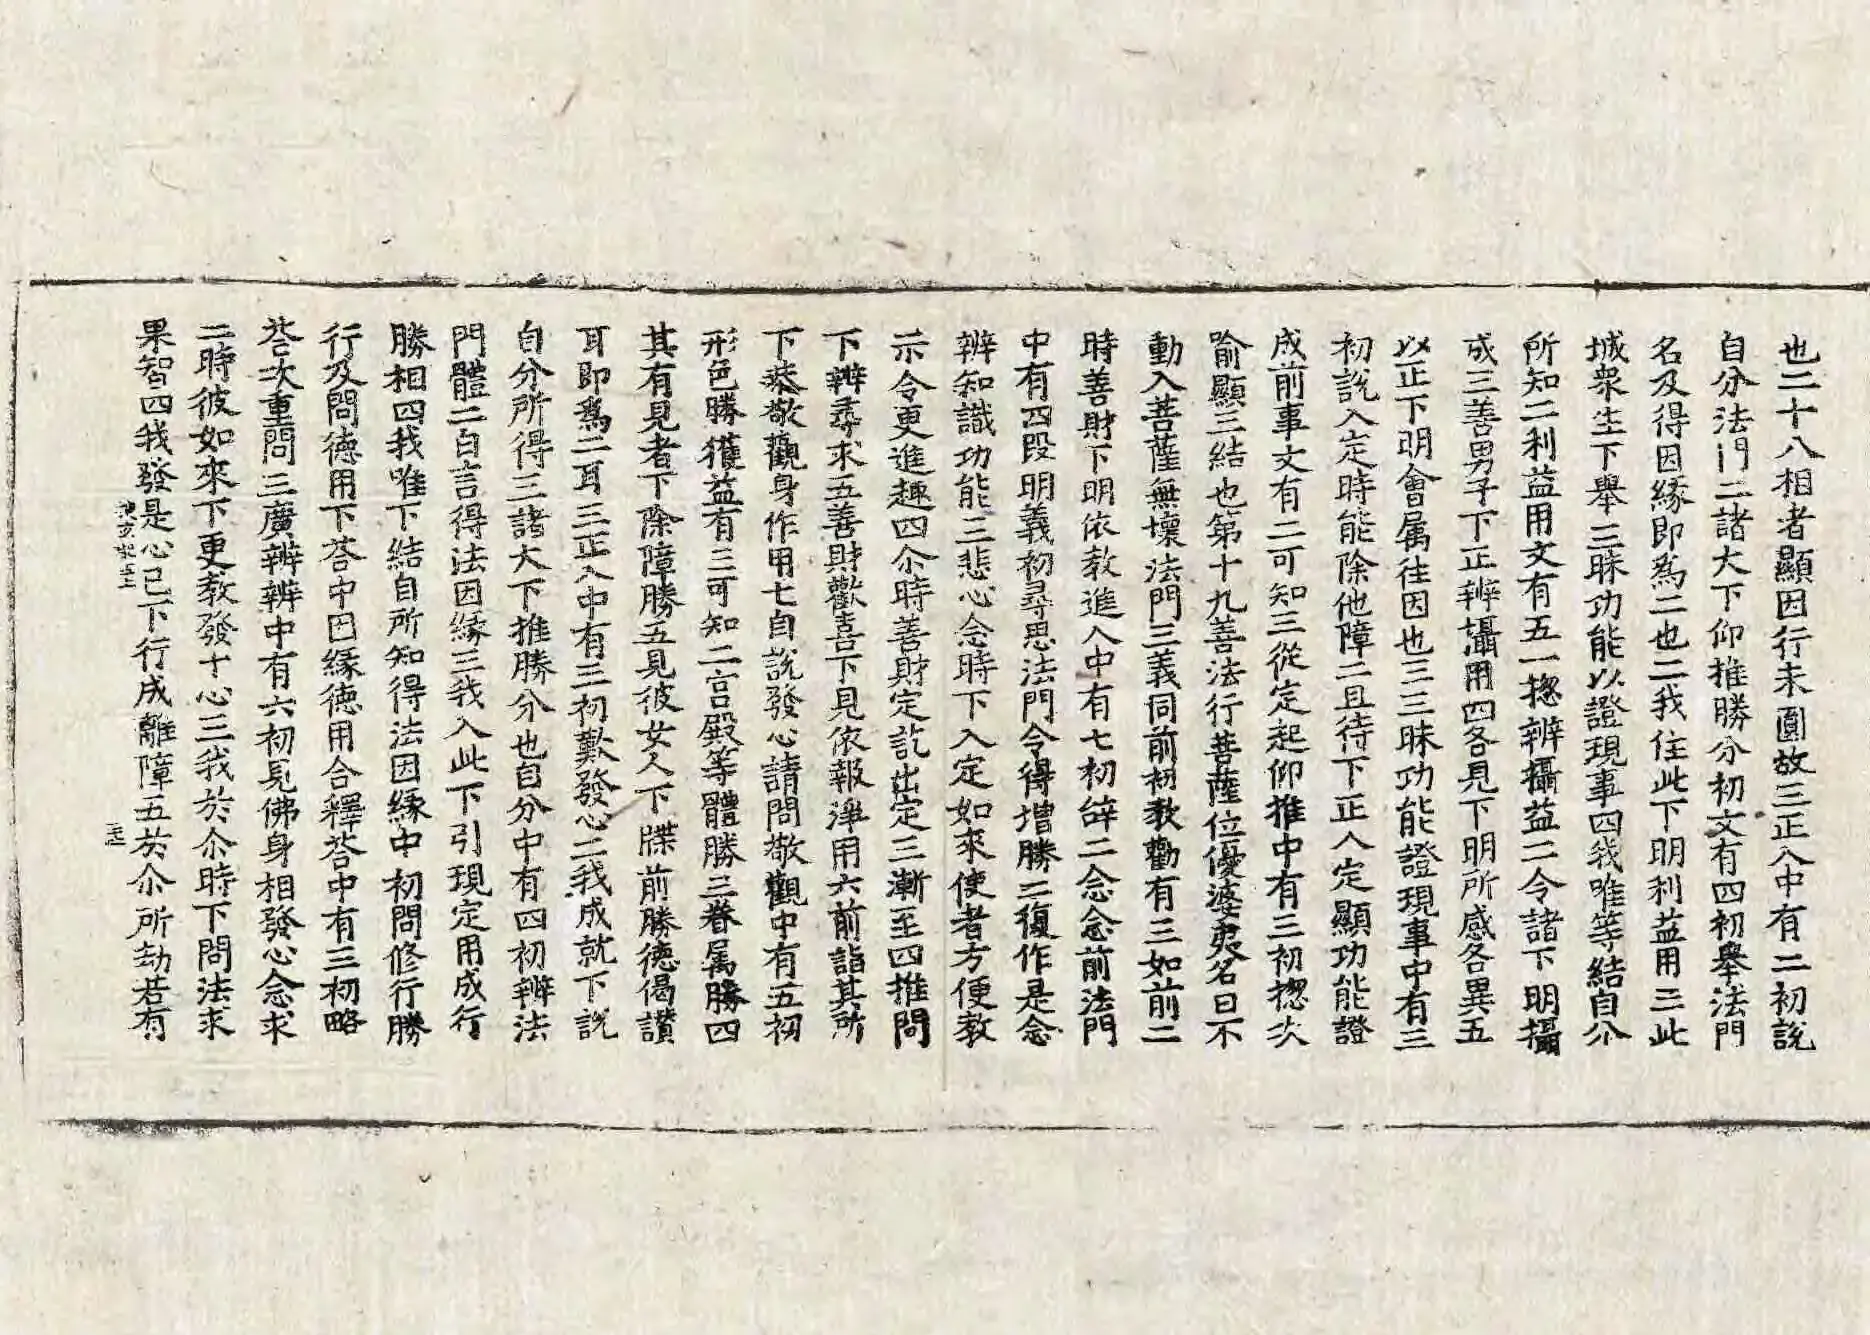 也二十八相者顯因行未圓故三正入中有二初說
自分法門二諸大下仰推勝分初文有四初舉法門
名及得因緣即為二也二我住此下明利益用三此
城衆生下舉三昧功能以證現事四我唯等結自分
所知二利益用文有五一揔辨攝益二令諸下明攝
成三善男子下正辨攝用四各見下明所感各異五
以正下明會属往因也三三昧功能證現事中有三
初說入定時能除他障二且待下正入定顯功能證
成前事文有二可知三從定起仰推中有三初揔次
喻顯三結也第十九善法行菩薩位優婆夷名曰不
動入菩薩無壞法門三義同前初教勸有三如前二
時善財下明依教進入中有七初辝二念念前法門
中有四段明義初尋思法門令得增勝二復作是念
辨知識功能三悲心念時下入定如來使者方便教
示令更進趣四尒時善財定訖出定三漸至四推問
下辨尋求五善財歡喜下見依報淨用六前詣其所
下恭敬觀身作用七自說發心請問敬觀中有五初
形色勝獲益有三可知二宮殿等體勝三眷属勝四
其有見者下除障勝五見彼女人下牒前勝德偈讚
耳即爲二耳三正入中有三初歎發心二我成就下說
自分所得三諸大下推勝分也自分中有四初辨法
門體二白言得法因緣三我入此下引現定用成行
勝相四我唯下結自所知得法因緣中初問修行勝
行及問德用下荅中因緣德用合釋荅中有三初略
荅次重問三廣辨辨中有六初見佛身相發心念求
二時彼如來下更教發十心三我於尒時下問法求
果智四我發是心已下行成離障五於尒所劫若有